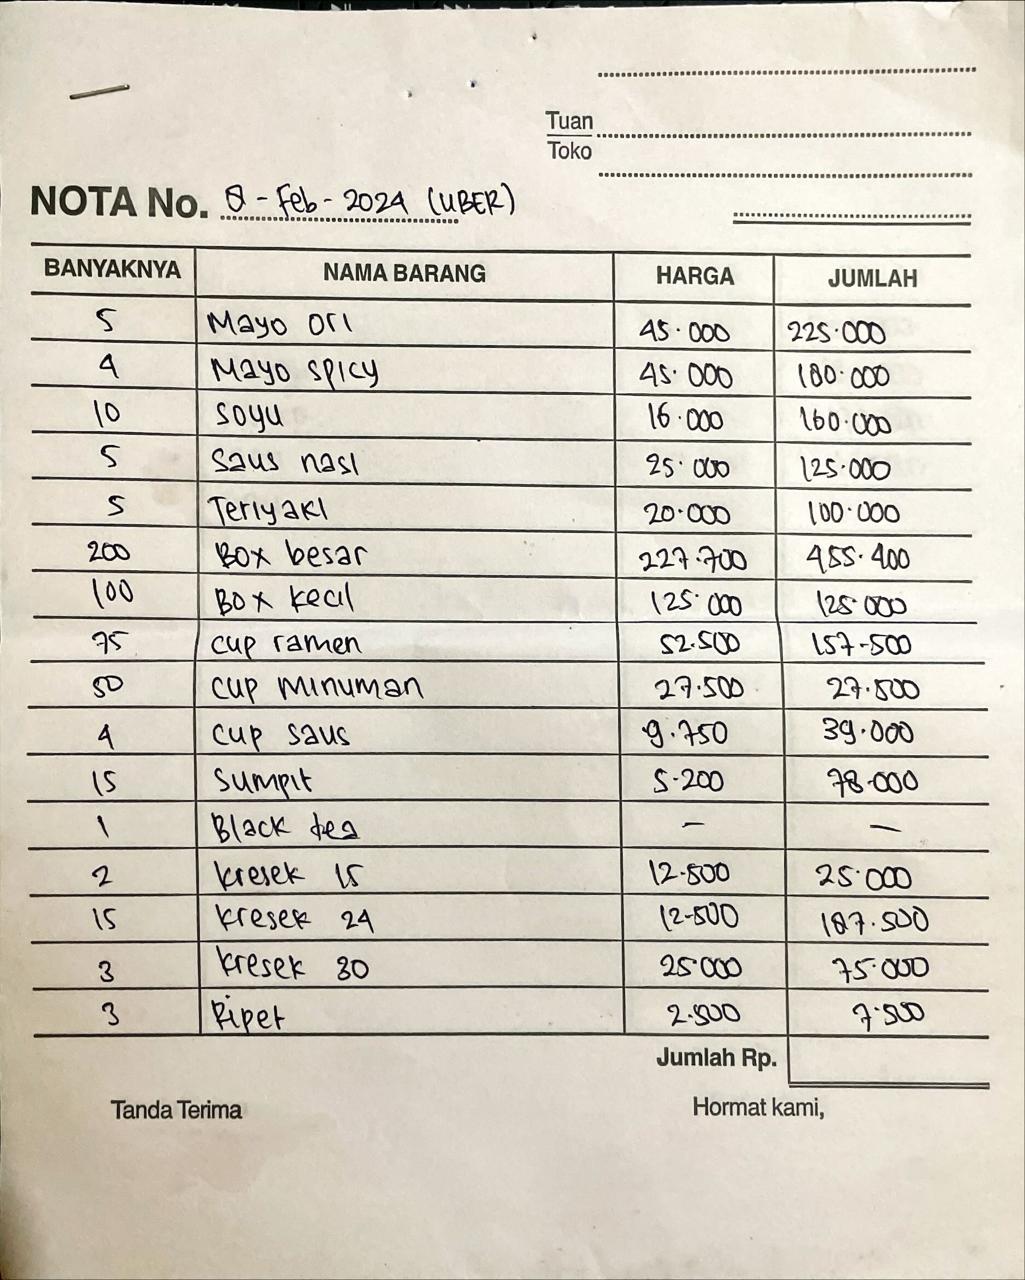 Tuan
Toko
NOTA No. 8 - Feb - 2024 (UBER)
BANYAKNYA NAMA BARANG HARGA JUMLAH
5 Mayo ori 45.000 225.000
4 Mayo spicy 45.000 180.000
10 soyu 16.000 160.000
5 saus nasi 25.000 125.000
5 Teriyaki 20.000 100.000
200 Box besar 227.700 455.400
100 Box kecil 125.000 125.000
75 cup ramen 52.500 157-500
50 cup minuman 27.500 27.500
4 cup saus 9.750 39.000
15 sumpit 5.200 78.000
1 Black tea — —
2 kresek 15 12.500 25.000
15 kresek 24 12-500 187.500
3 kresek 30 25000 75.000
3 Pipet 2.500 7.500
Jumlah Rp.
Tanda Terima Hormat kami,